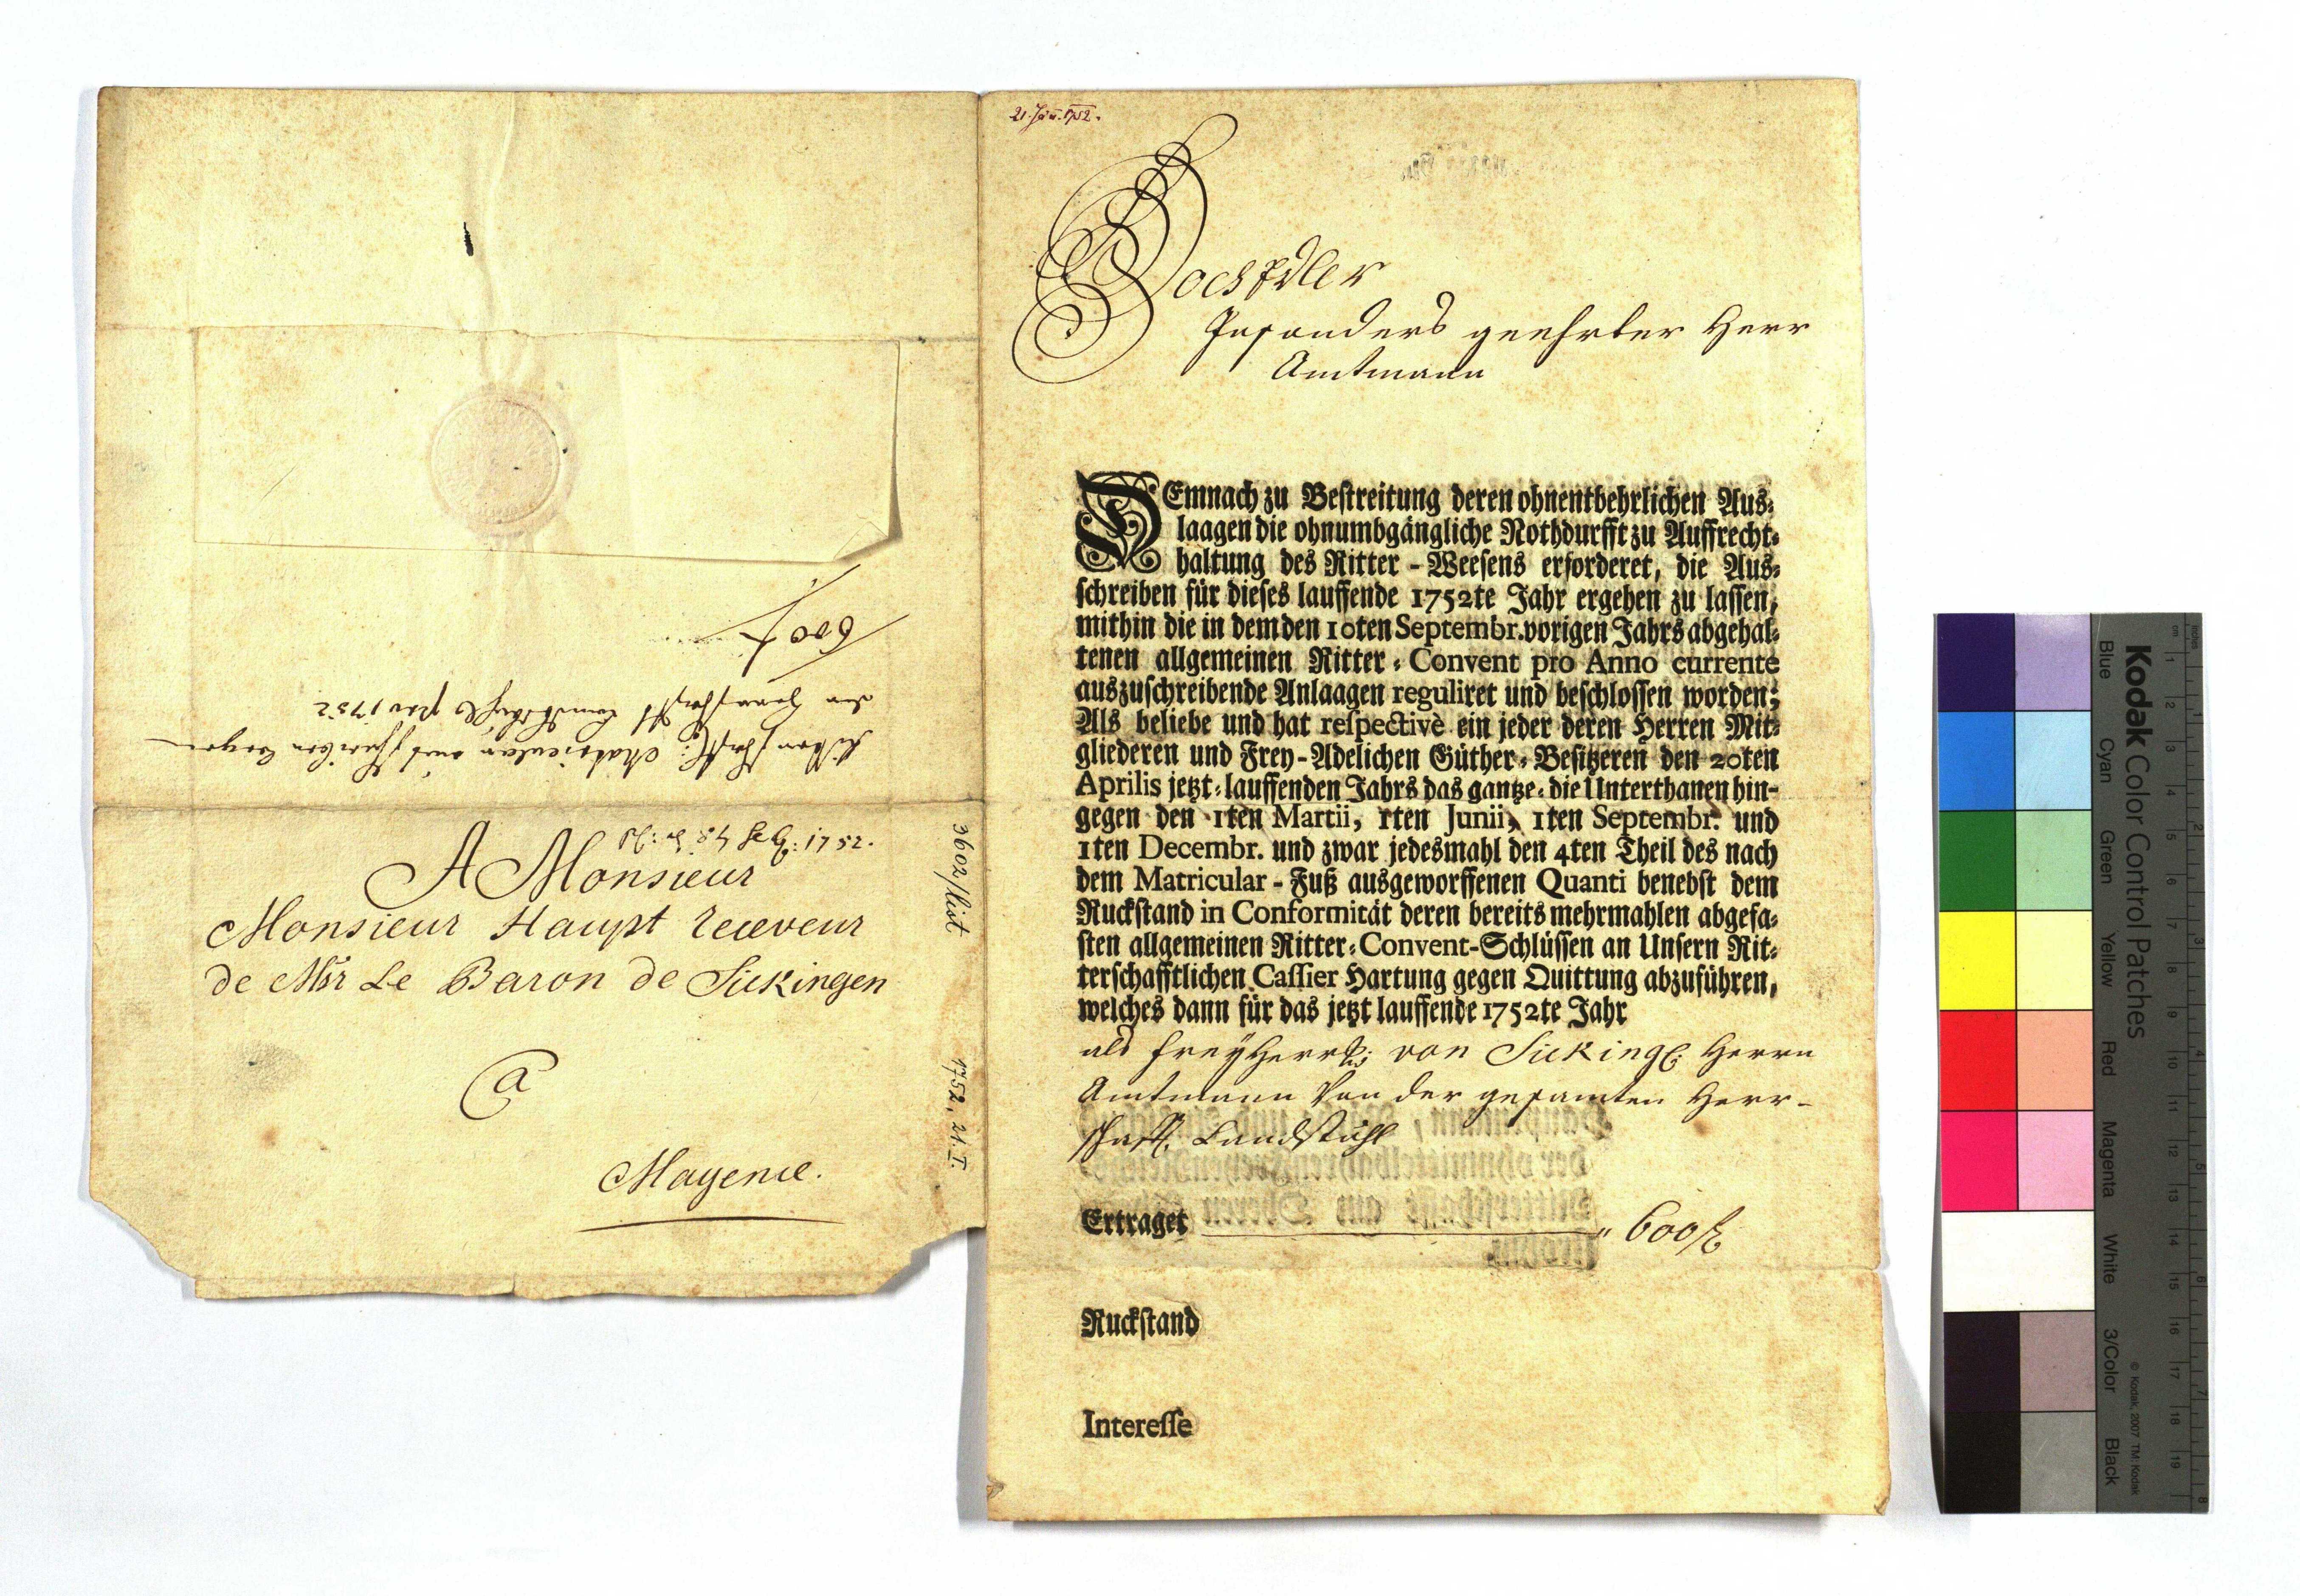 600 f
der Herrschafft Landstuhl pro 1752
A Monsieur
Monsieur Haupt Receveur
de Mr Le Baron de Sickingen
a
Mayence.
3602/List
1752, 21. I.
21. Jan. 1752.
HochEdler
Insonders geehrter Herr
Amtmann
DEmnach zu Bestreitung deren ohnentbehrlichen Aus-
laagen die ohnumbgängliche Nothdurfft zu Auffrecht-
haltung des Ritter-Weesens erforderet, die Aus-
schreiben für dieses lauffende 1752te Jahr ergehen zu lassen,
mithin die in dem den 10ten Septembr. vorigen Jahrs abgehal-
tenen allgemeinen Ritter-Convent pro Anno currente
auszuschreibende Anlaagen reguliret und beschlossen worden;
Als beliebe und hat respectivè ein jeder deren Herren Mit-
gliederen und Frey-Adelichen Güther-Besitzeren den 20ten
Aprilis jetzt-lauffenden Jahrs das gantze- die Unterthanen hin-
gegen den 1ten Martii, 1ten Junii, 1ten Septembr. und
1ten Decembr. und zwar jedesmahl den 4ten Theil des nach
dem Matricular-Fuß ausgeworffenen Quanti benebst dem
Ruckstand in Conformität deren bereits mehrmahlen abgefa-
sten allgemeinen Ritter-Convent-Schlüssen an Unsern Rit-
terschafftlichen Cassier Hartung gegen Quittung abzuführen,
welches dann für das jetzt lauffende 1752te Jahr
als FreyHerrl. von Sicking. Herrn
Amtmann Von der gesamten Herr-
schafft Landstuhl
Ertraget 600 f
Ruckstand
Interesse
Kodak Color Control Patches
Blue Cyan Green Yellow Red Magenta White 3/Color Black
© Kodak, 2007 TM: Kodak
inches 1 2 3 4 5 6 7 8
cm 1 2 3 4 5 6 7 8 9 10 11 12 13 14 15 16 17 18 19